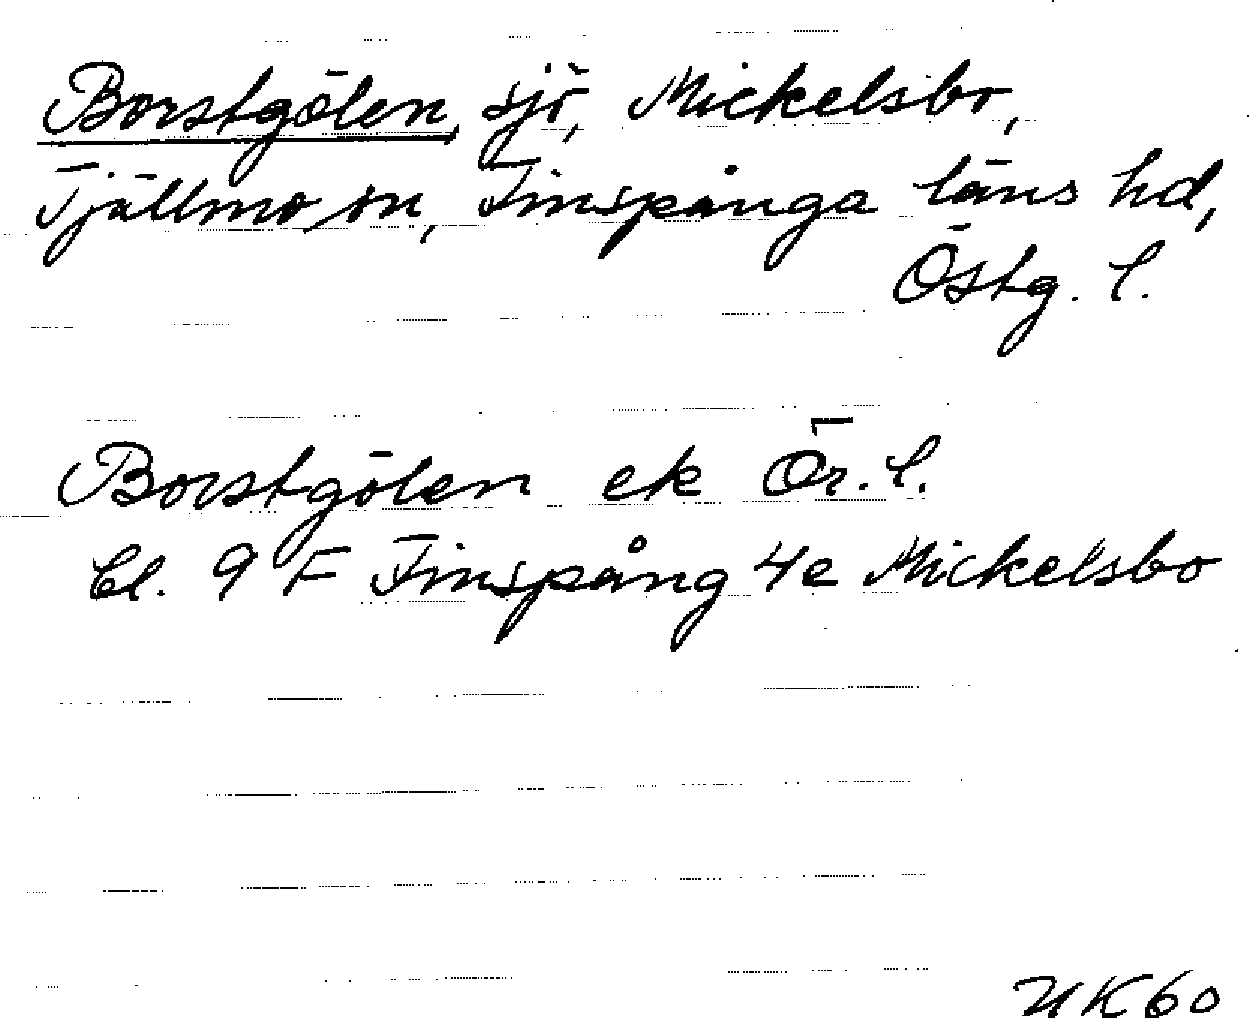 Borstgölen, sjö, Mickelsbo,
Tjällmo sn, Finspånga läns hd,
Östg. l.
Borstgölen ek Ör. l.
Bl. 9 F Finspång 4e Mickelsbo
UK60